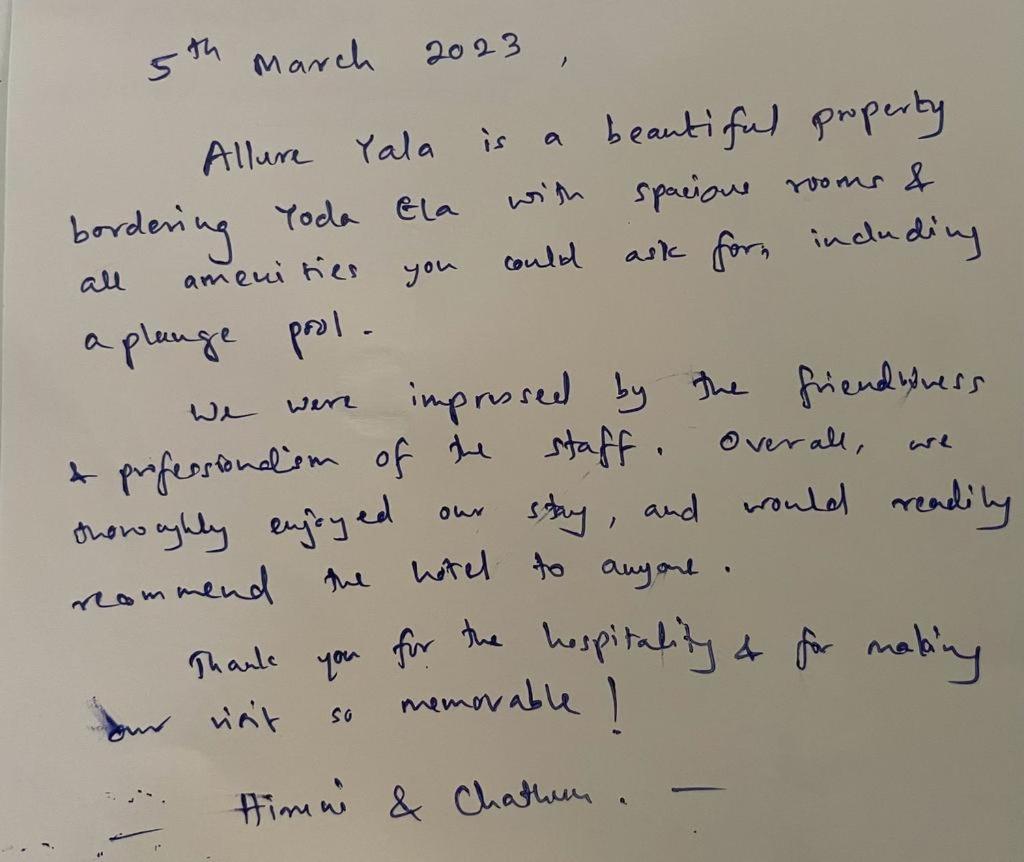 5th March 2023,
Allure Yala is a beautiful property
bordering Yoda Ela with spacious rooms &
all amenities you could ask for, including
a plunge pool.
We were impressed by the friendliness
& professionalism of the staff. Overall, we
thoroughly enjoyed our stay, and would readily
recommend the hotel to anyone.
Thank you for the hospitality & for making
our visit so memorable!
& —